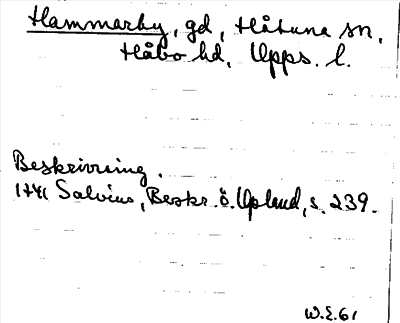 Hammarby, gd, Håtuna sn,
Håbo hd, Upps. l.
Beskrivning.
1741 Salvius, Beskr. ö. Upland, s. 239.
W.E.61